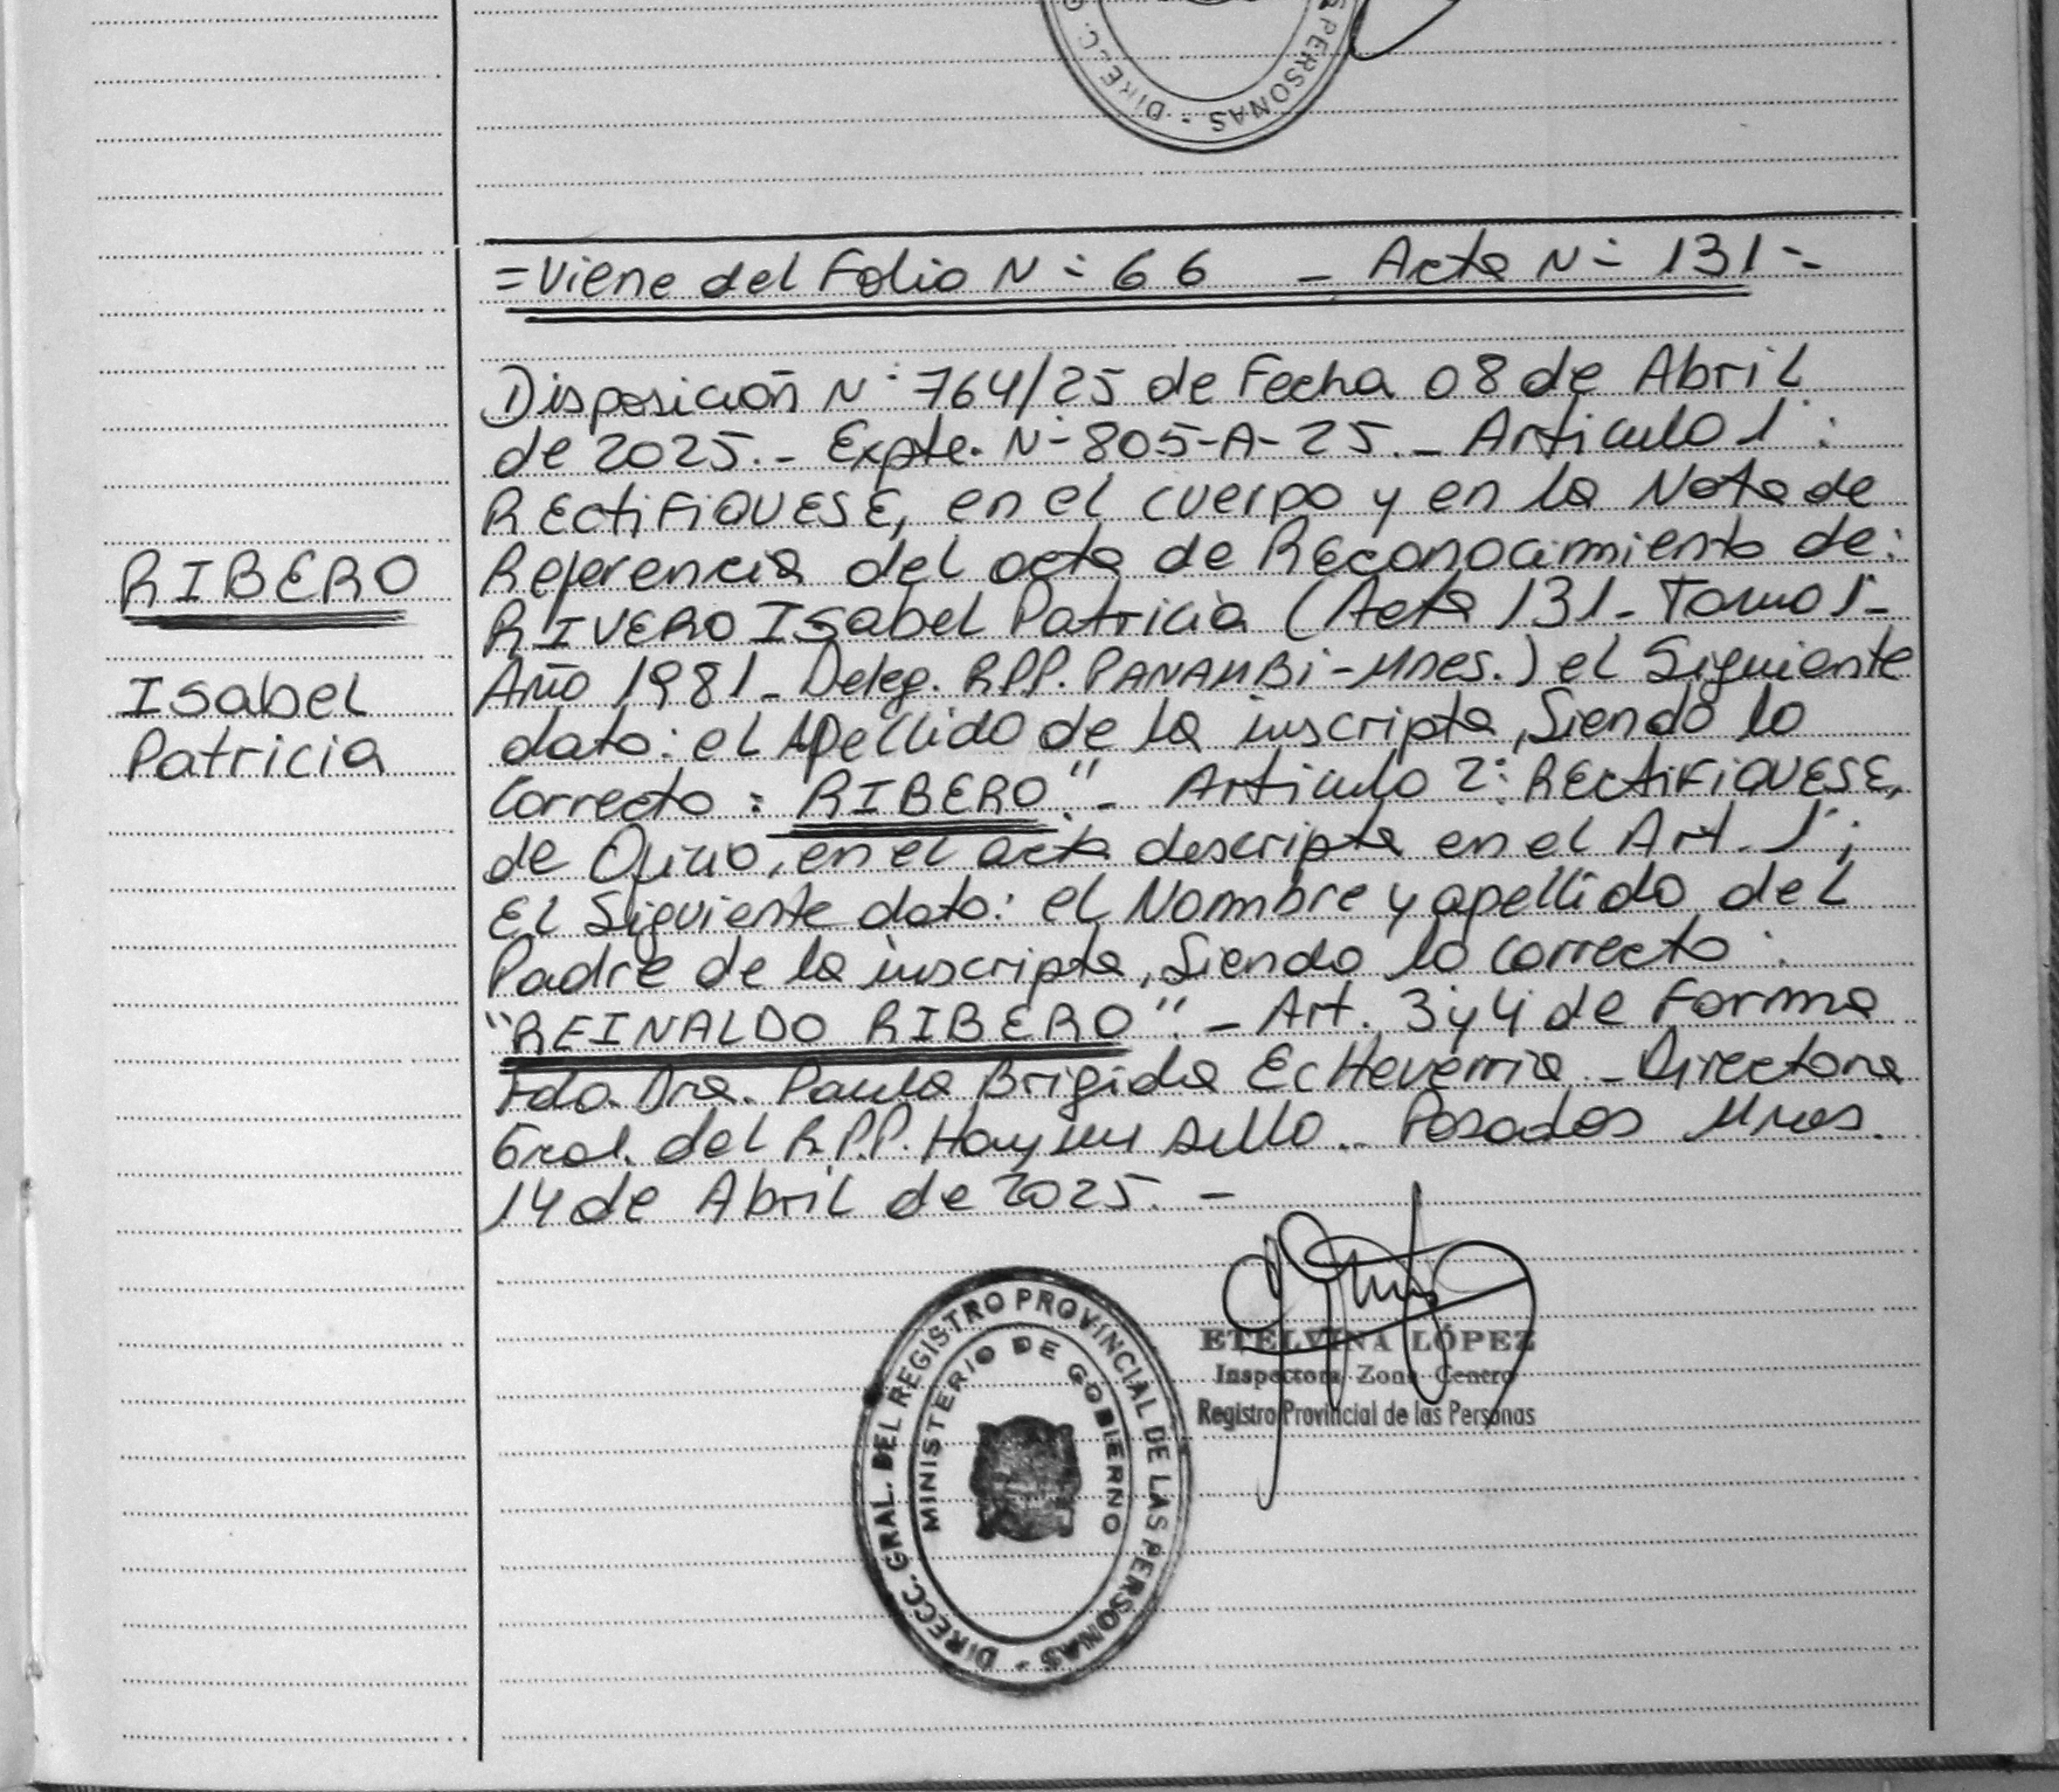 S PERSONAS - DIRECC. G
=Viene del Folio N- 66 - Acta N- 131-
Disposición N° 764/25 de Fecha 08 de Abril
de 2025.- Expte. N-805-A-25.- Articulo 1°:
RECtiFiQUESE, en el cuerpo y en la Nota de
Referencia del acta de REconocimiento de:
RIBERO
RIVERO ISabel Patricia (Acta 131- Tomo 1°-
Año 1981- Deleg. RPP. PANAMBi-Mnes.) el Siguiente
Isabel
dato: el Apellido de la inscripta, Siendo lo
Patricia
Correcto: RIBERO".- Articulo 2°: RECtiFiQUESE,
de Oficio, en el acta descripta en el Art. 1°;
El Siguiente dato: el Nombre y apellido del
Padre de la inscripta, Siendo lo correcto:
"REINALDO RIBERO".- Art. 3 y 4 de Forma
Fdo. Dra. Paula Brigida EcHeverria - Directora
Gral. del R.P.P. Hay un sello.- Posadas Mnes.
14 de Abril de 2025.-
ETELVINA LÓPEZ
Inspectora Zona Centro
Registro Provincial de las Personas
DIRECC. GRAL. DEL REGISTRO PROVINCIAL DE LAS PERSONAS -
MINISTERIO DE GOBIERNO